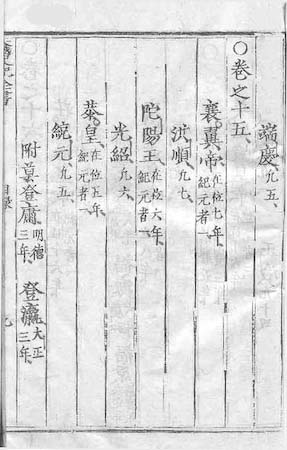 端慶凢五、
〇卷之十五、
襄翼帝在位七年、紀元者一、
洪順凢七、
陀陽王在位六年、紀元者一、
光紹凢六、
恭皇在位五年、紀元者一、
統元凢五、
附莫登庸明德三年、 登瀛大正三年、
目錄